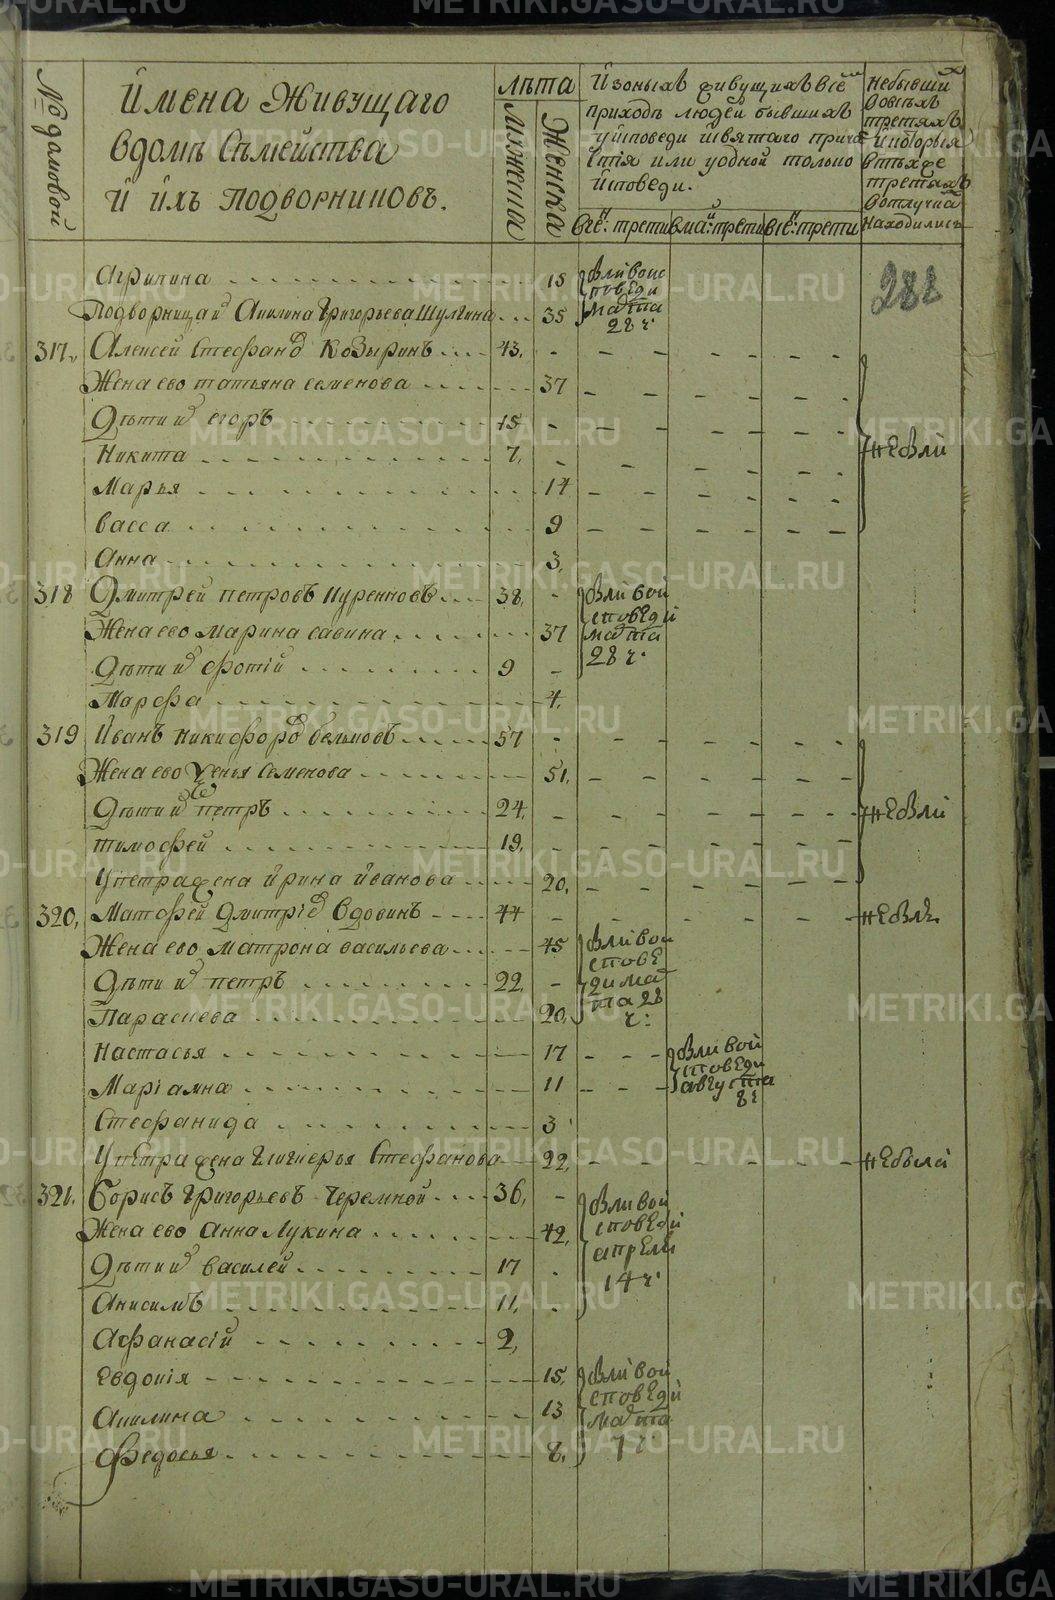 № домовой
Имена Живущаго
вдомѣ Сѣмейства
И ихъ Подворниковъ.
лѣта
Мужеска
Женска
Изоныхъ живущихъ всіе
приходъ людей бывшихъ
уисповеди исвятаго прича
стія или уодной только
исповеди.
в ге҃: трети
в ма҃: трети
в се҃: трети
Небывши
вовсѣхъ
третяхъ
и которыя
втѣхже
третяхъ
вотлучиі
находились
288
Агрипина 15
были воис
поведи
марта
28 ч
Подворница и҃ Акилина Григорьева Шулгина 35
317. Алексей Стефанов Козыринъ 43.
Жена ево татьяна семенова 37
Дѣти и҃ егоръ 15
Никита 7.
небыли
Марья 14
васса 9
Анна 3.
318 Дмитрей петровъ Куренковъ 38.
были вои
споведи
марта
28 ч.
Жена ево марина савина 37
Дѣти и҃ фотій 9
Марфа 4.
319 Иванъ никифоров белыковъ 57
Жена ево Ксенья Семенова 51.
Дѣти и҃ петръ 24.
небыли
тимофей 19.
У петра жена ирина иванова 20.
320. Матфей Дмитріев Вдовинъ 44
небылъ
Жена ево матрона васильева 45
были вои
спове
ди мар
та 28
ч:
Дѣти и҃ петръ 22.
Параскева 20.
Настасья 17
были вои
споведи
августа
8 ч
Маріамна 11
Стефанида 3
У петра жена Гликперья Стефанова 22.
небыла
321. Борисъ Григорьевъ Черемной 36.
были вои
споведи
апреля
14 ч.
Жена ево Анна Лукина 42.
Дѣти и҃ василей 17
Анисимъ 11.
Афанасій 2.
Евдокія 15.
были вои
споведи
марта
7 ч.
Акилина 13
Федосья 8.
METRIKI.GASO-URAL.RU